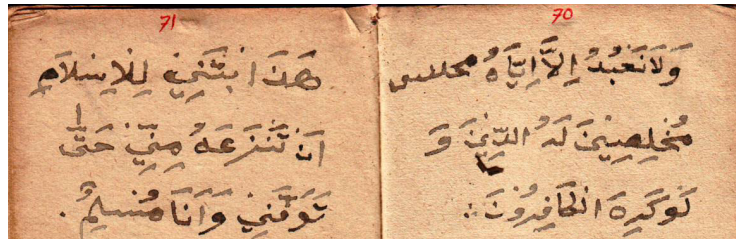 70
وَلَا نَعْبُدُ اِلَّا اِيَّاهُ
مُخْلِصِينَ لَهُ الدِّينَ وَ
لَوْ كَرِهَ الْكَافِرُونَ
71
هَدَايْتَنِي لِلْاِسْلَامِ
اَنْ تَنْزَعَهُ مِنِّي حَتَّى
تَوَفَّنِي وَاَنَا مُسْلِمٌ .